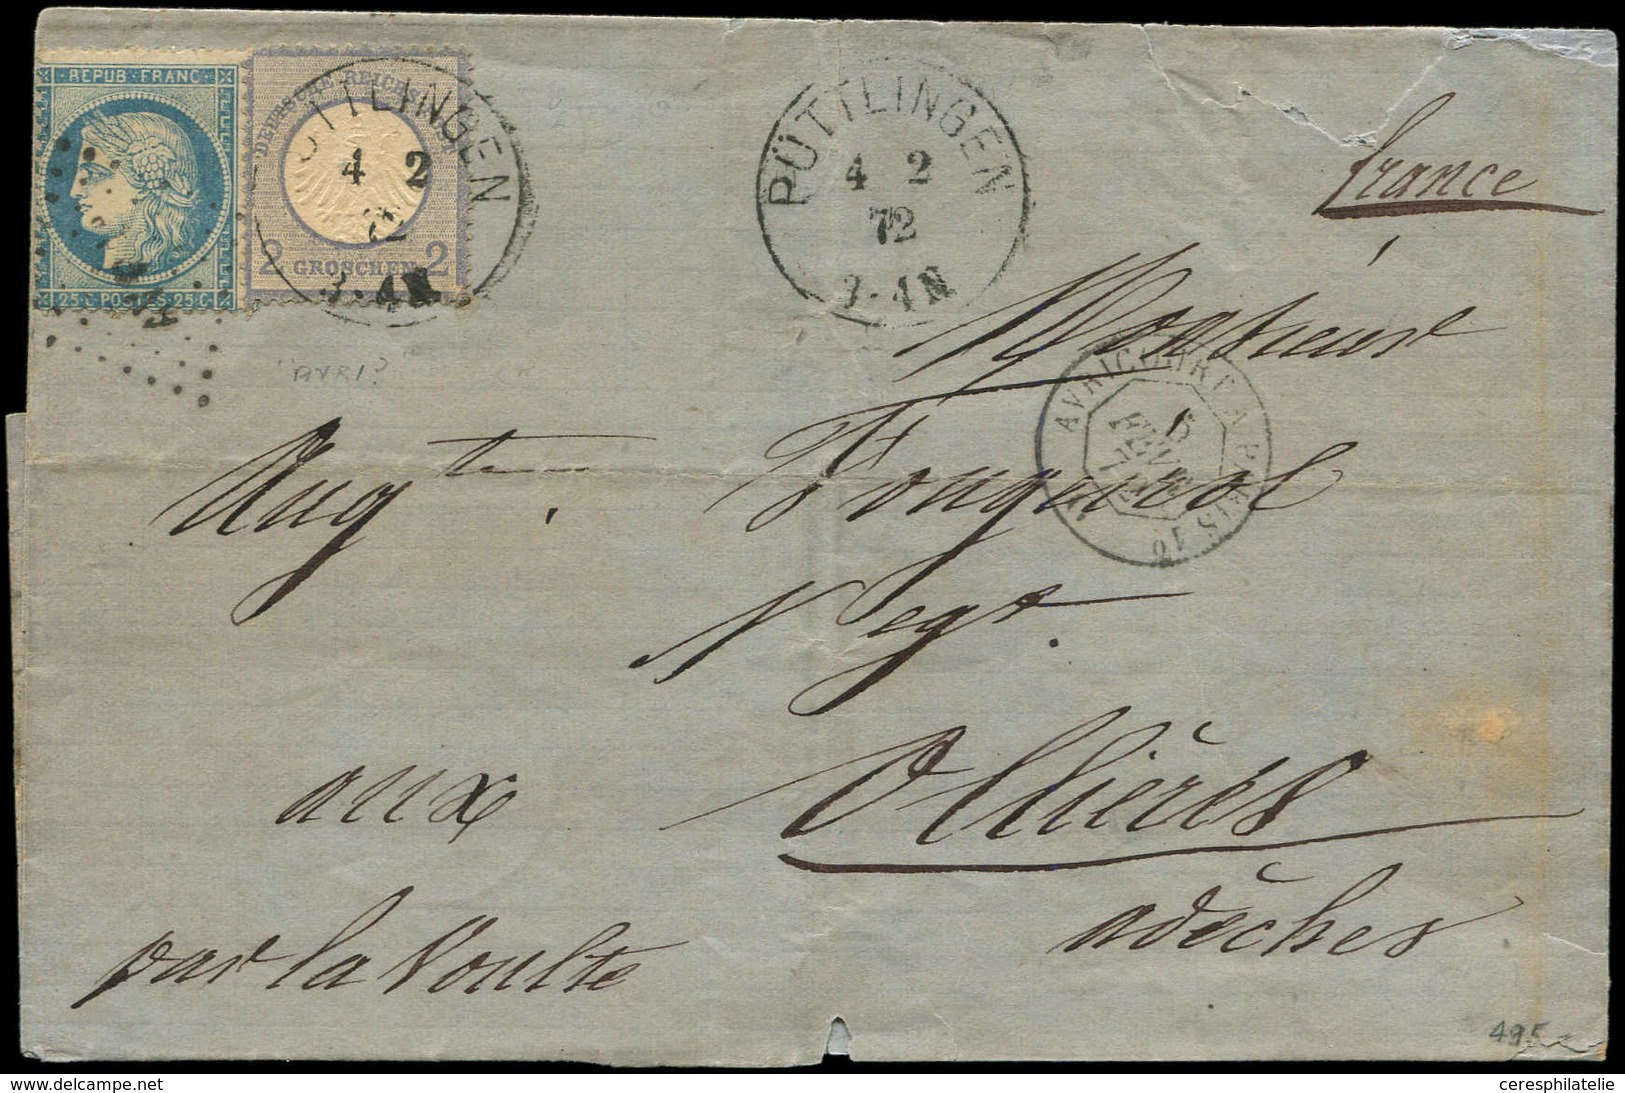 REPUB FRANC
25 C POSTES 25 C
DEUTSCHE REICHS
2 GROSCHEN 2
ÜTTLINGEN
4 2
72
PÜTTLINGEN
4 2
72
france
Monsieur
AVRICOURT A PARIS
6
FEVR
"AVRI?"
Augte. Fougeirol
Negt.
aux Ollières
adèches
par la Voulte
495
ceresphilatelie